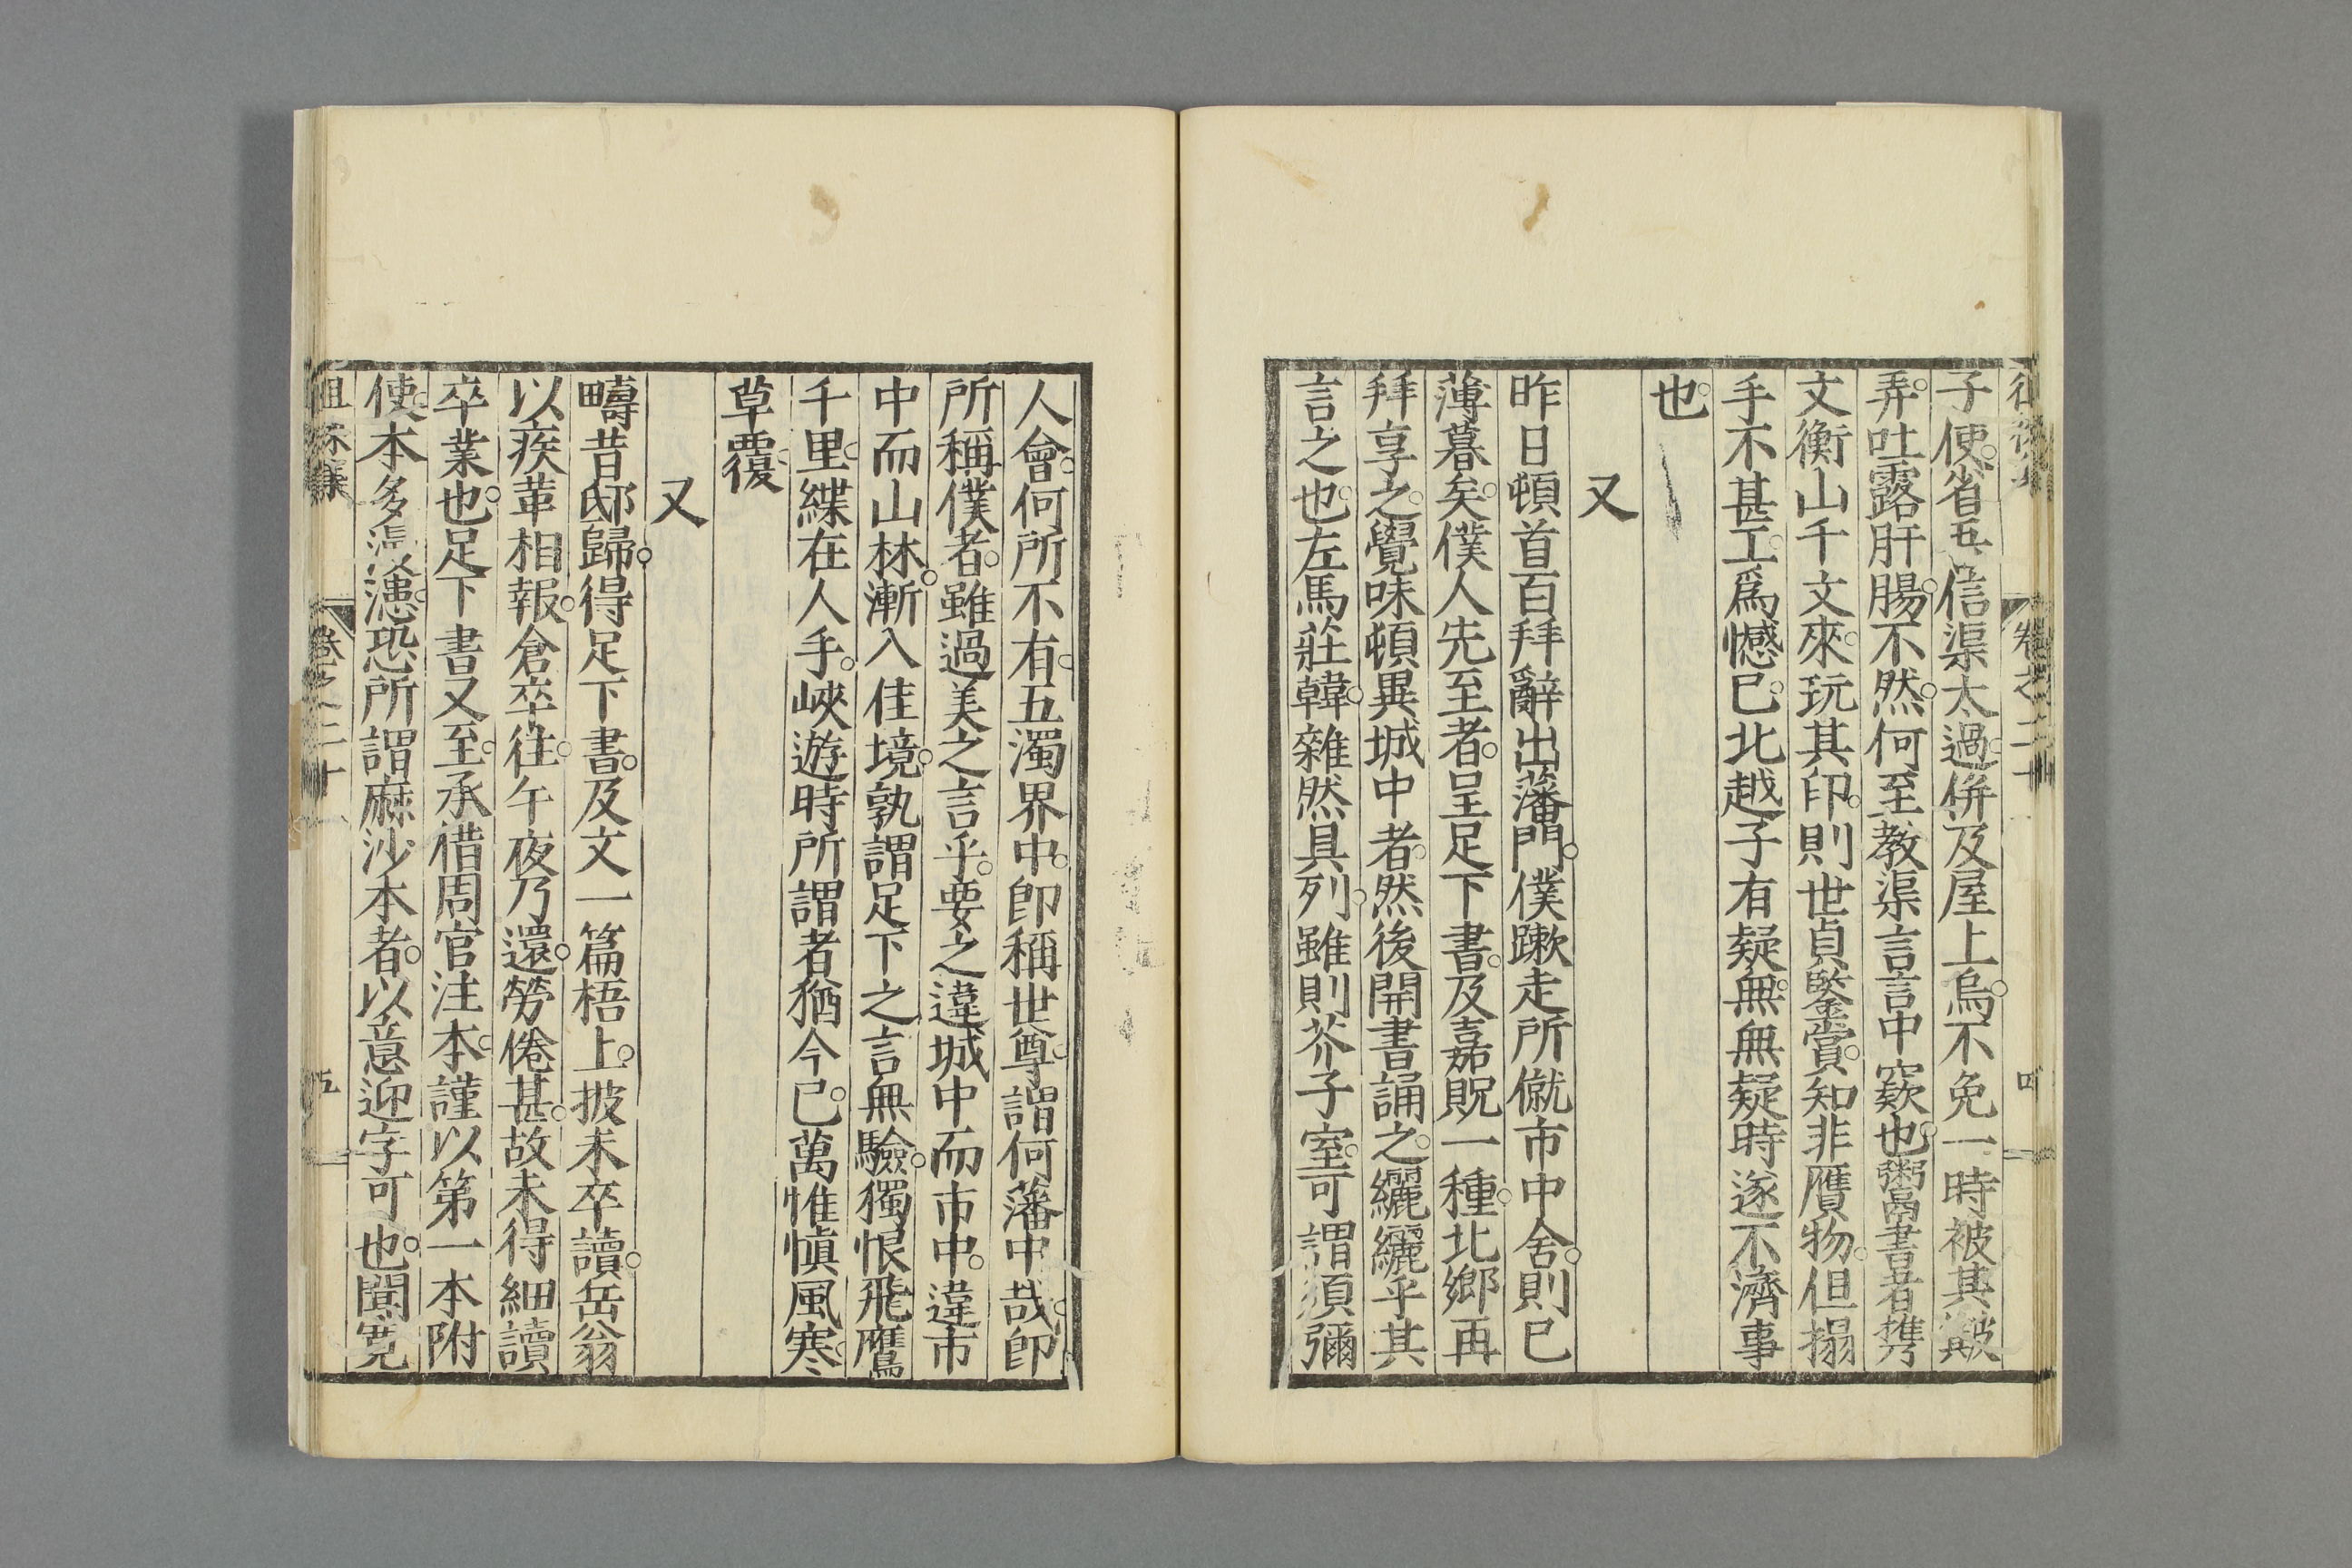 子使。省吾信渠太過。併及屋上烏。不免一時被其簸
弄。吐露肝腸。不然。何至教渠言言中窾也。鬻書者携
文衡山千文來。玩其印。則世貞鑒賞。知非贋物。但搨
手不甚工。爲憾已。北越子有疑無。無疑時遂不濟事
也。
又
昨日頓首百拜辭出藩門。僕蹶走所僦市中舍。則已
薄暮矣。僕人先至者。呈足下書。及嘉貺一種。北鄉再
拜享之。覺味頓異城中者。然後開書誦之。纚纚乎其
言之也。左馬莊韓。雜然具列。雖則芥子室。可謂須彌
人會。何所不有。五濁界中。卽稱世尊。謂何藩中哉。卽
所稱僕者。雖過美之言乎。要之違城中而市中。違市
中而山林。漸入佳境。孰謂足下之言無驗。獨恨飛鷹
千里。緤在人手。峽遊時所謂者猶今已。萬惟愼風寒。
草覆。
又
疇昔邸歸。得足下書。及文一篇梧上。披未卒讀。岳翁
以疾革相報。倉卒往。午夜乃還。勞倦甚。故未得細讀
卒業也。足下書又至。承借周官注本。謹以第一本附
使。本多漶。恐所謂麻沙本者。以意迎字可也。聞寬
徂徠集
卷之二十
五